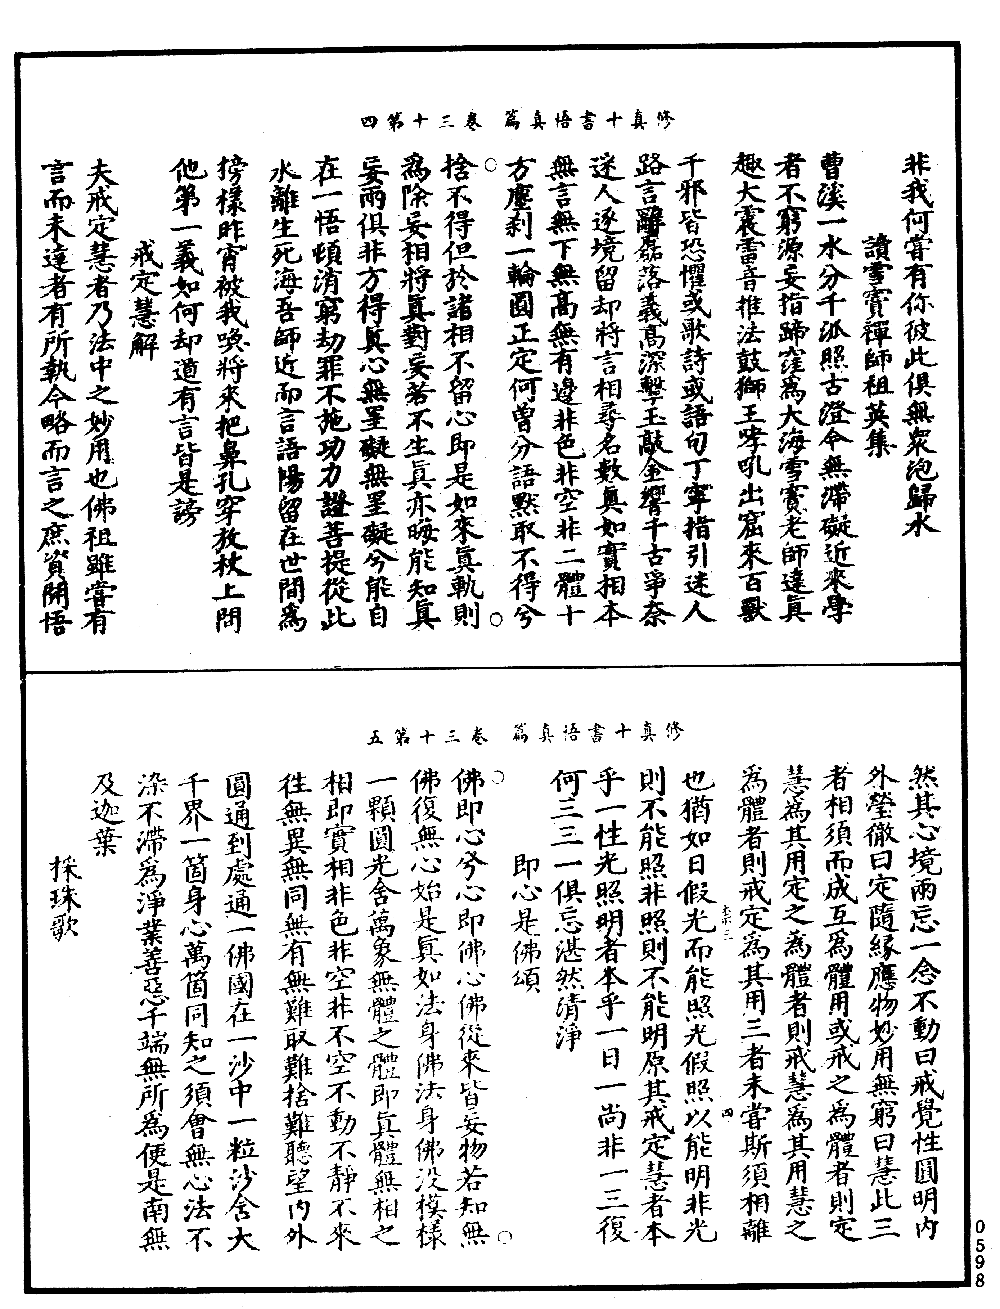 修真十書悟真篇　卷三十第四
非我何嘗有你彼此俱無衆泡歸水
讀雪竇禪師祖英集
曹溪一水分千派照古澄今無滯礙近來學
者不窮源妄指蹄窪爲大海雪竇老師達真
趣大震雷音推法鼓獅王哮吼出窟來百獸
千邪皆恐懼或歌詩或語句丁寧指引迷人
路言辭磊落義高深擊玉敲金響千古爭奈
迷人逐境留却將言相尋名數真如實相本
無言無下無高無有邊非色非空非二體十
方塵刹一輪圓正定何曾分語默取不得兮
捨不得但於諸相不留心即是如來真軌則
爲除妄相將真對妄若不生真亦晦能知真
妄兩俱非方得真心無罣礙無罣礙兮能自
在一悟頓消窮劫罪不施功力證菩提從此
永離生死海吾師近而言語暢留在世間爲
榜樣昨宵被我喚將來把鼻孔穿放杖上問
他第一義如何却道有言皆是謗
戒定慧解
夫戒定慧者乃法中之妙用也佛祖雖嘗有
言而未達者有所執今略而言之庶資開悟
修真十書悟真篇　卷三十第五
然其心境兩忘一念不動曰戒覺性圓明內
外瑩徹曰定隨緣應物妙用無窮曰慧此三
者相須而成互爲體用或戒之爲體者則定
慧爲其用定之爲體者則戒慧爲其用慧之
爲體者則戒定爲其用三者未嘗斯須相離
也猶如日假光而能照光假照以能明非光
則不能照非照則不能明原其戒定慧者本
乎一性光照明者本乎一日一尚非一三復
何三三一俱忘湛然清淨
即心是佛頌
佛即心兮心即佛心佛從來皆妄物若知無
佛復無心始是真如法身佛法身佛沒模樣
一顆圓光含萬象無體之體即真體無相之
相即實相非色非空非不空不動不靜不來
往無異無同無有無難取難捨難聽望內外
圓通到處通一佛國在一沙中一粒沙含大
千界一箇身心萬箇同知之須會無心法不
染不滯爲淨業善惡千端無所爲便是南無
及迦葉
採珠歌
0598